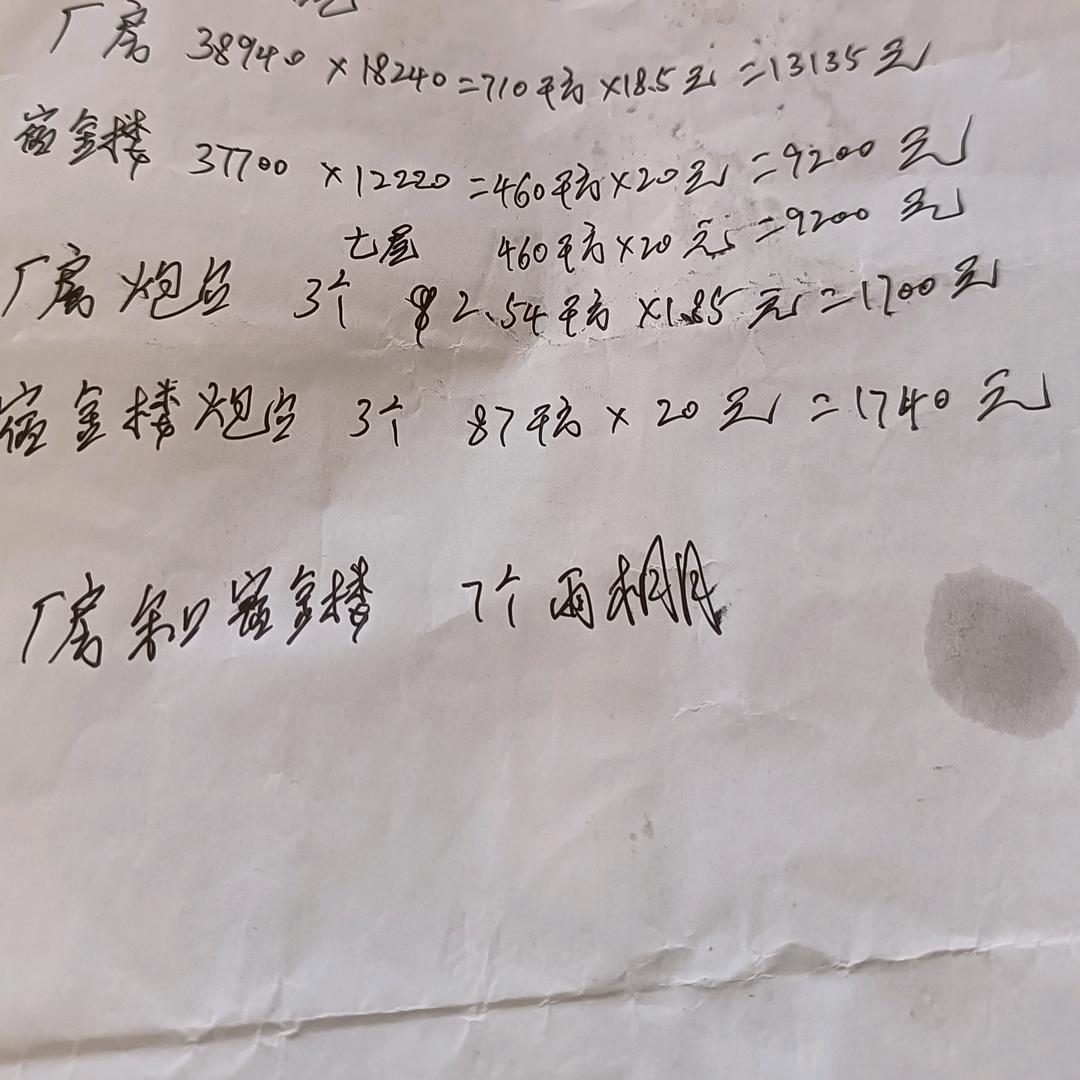 厂房 38940×18240=710平方×18.5元=13135元
宿舍楼 37700×12220=460平方×20元=9200元
七层 460平方×20元=9200元
厂房炮台 3个 92.54平方×1.85元=1700元
宿舍楼炮台 3个 87平方×20元=1740元
厂房和宿舍楼 7个雨棚